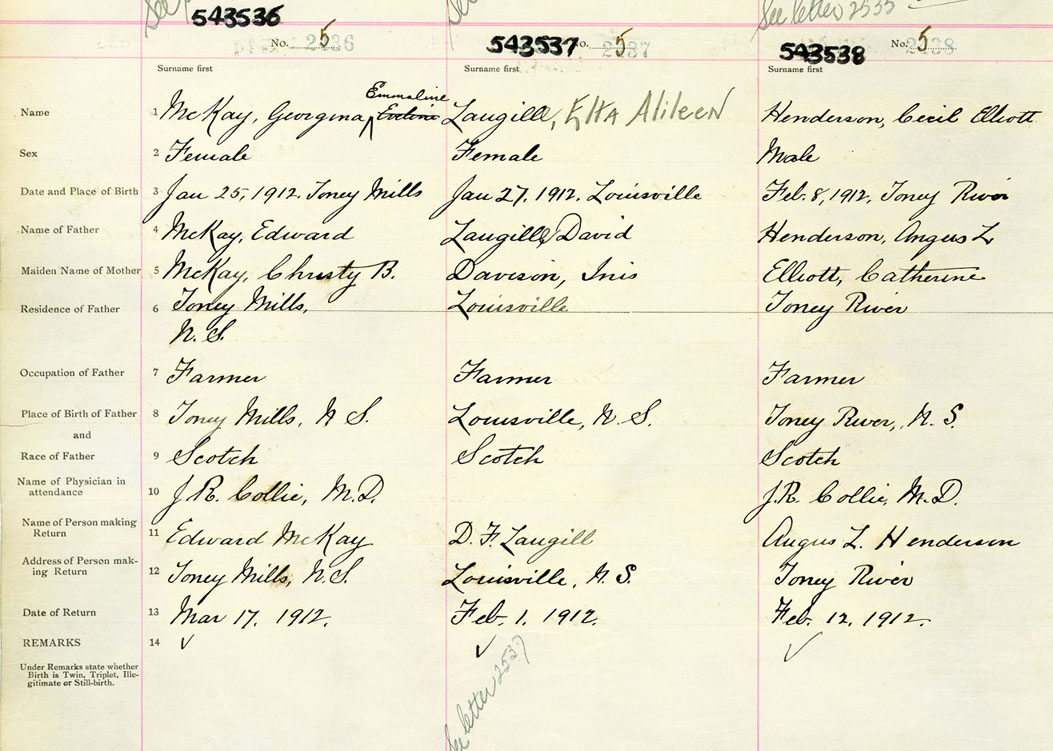 See letter 2535
543536 543537 543538
No. 5 No. 5 No. 5
2537
Surname first Surname first Surname first
Emmaline
Name 1 McKay, Georgina Eveline Langille, Etta Alileen Henderson, Cecil Elliott
Sex 2 Female Female Male
Date and Place of Birth 3 Jan 25, 1912. Toney Mills Jan 27, 1912. Louisville Feb. 8, 1912, Toney River
Name of Father 4 McKay, Edward Langille, David Henderson, Angus L
Maiden Name of Mother 5 McKay, Christy B. Davison, Inis Elliott, Catherine
Residence of Father 6 Toney Mills, Louisville Toney River
N. S.
Occupation of Father 7 Farmer Farmer Farmer
Place of Birth of Father 8 Toney Mills, N S. Louisville, N. S. Toney River, N. S.
and
Race of Father 9 Scotch Scotch Scotch
Name of Physician in
attendance 10 J. R. Collie, M.D. J.R. Collie, M.D.
Name of Person making
Return 11 Edward McKay D. F. Langill Angus L. Henderson
Address of Person mak-
ing Return 12 Toney Mills, N.S. Louisville, N. S. Toney River
Date of Return 13 Mar 17, 1912. Feb. 1. 1912. Feb. 12, 1912.
REMARKS 14
Under Remarks state whether
Birth is Twin, Triplet, Ille-
gitimate or Still-birth.
See letter 2537